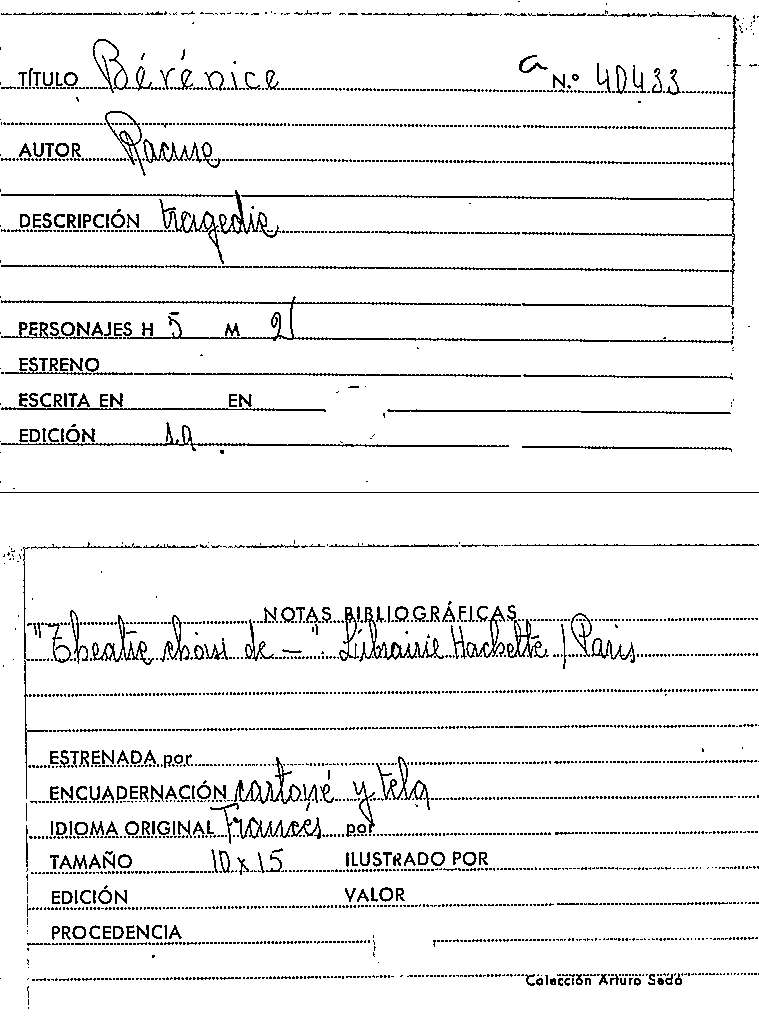 TÍTULO Bérénice a N.º 40433
AUTOR Racine
DESCRIPCIÓN tragedie
PERSONAJES H 5 M 2
ESTRENO
ESCRITA EN EN
EDICIÓN s.a
NOTAS BIBLIOGRÁFICAS
"Theatre choisi de — ". Librairie Hachette / Paris
ESTRENADA por
ENCUADERNACIÓN cartoné y tela
IDIOMA ORIGINAL Frances por
TAMAÑO 10 x 15 ILUSTRADO POR
EDICIÓN VALOR
PROCEDENCIA
Colección Arturo Sedó